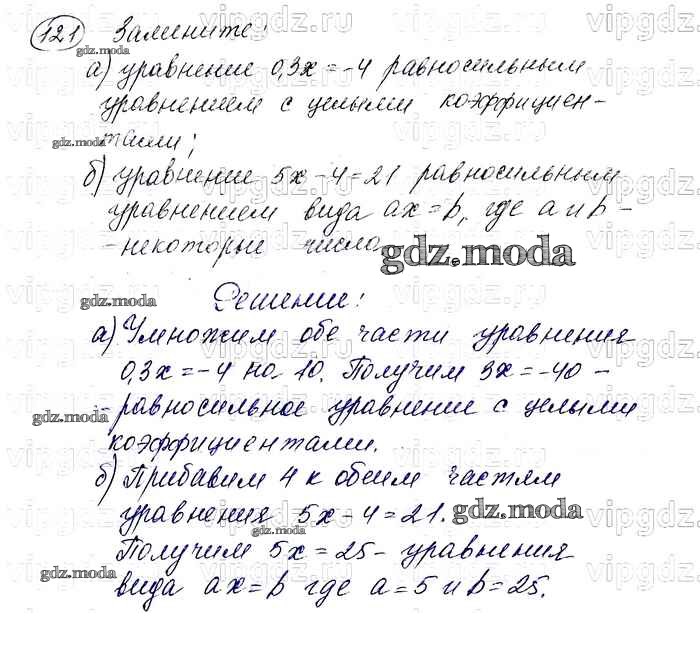 121 Замените:
а) уравнение 0,3x = -4 равносильным
уравнением с целыми коэффициен-
тами;
б) уравнение 5x - 4 = 21 равносильным
уравнением вида ax = b, где a и b -
- некоторые числа.
Решение:
а) Умножим обе части уравнения
0,3x = -4 на 10. Получим 3x = -40 -
- равносильное уравнение с целыми
коэффициентами.
б) Прибавим 4 к обеим частям
уравнения 5x - 4 = 21.
Получим 5x = 25 - уравнения
вида ax = b где a = 5 и b = 25.
gdz.moda
vipgdz.ru